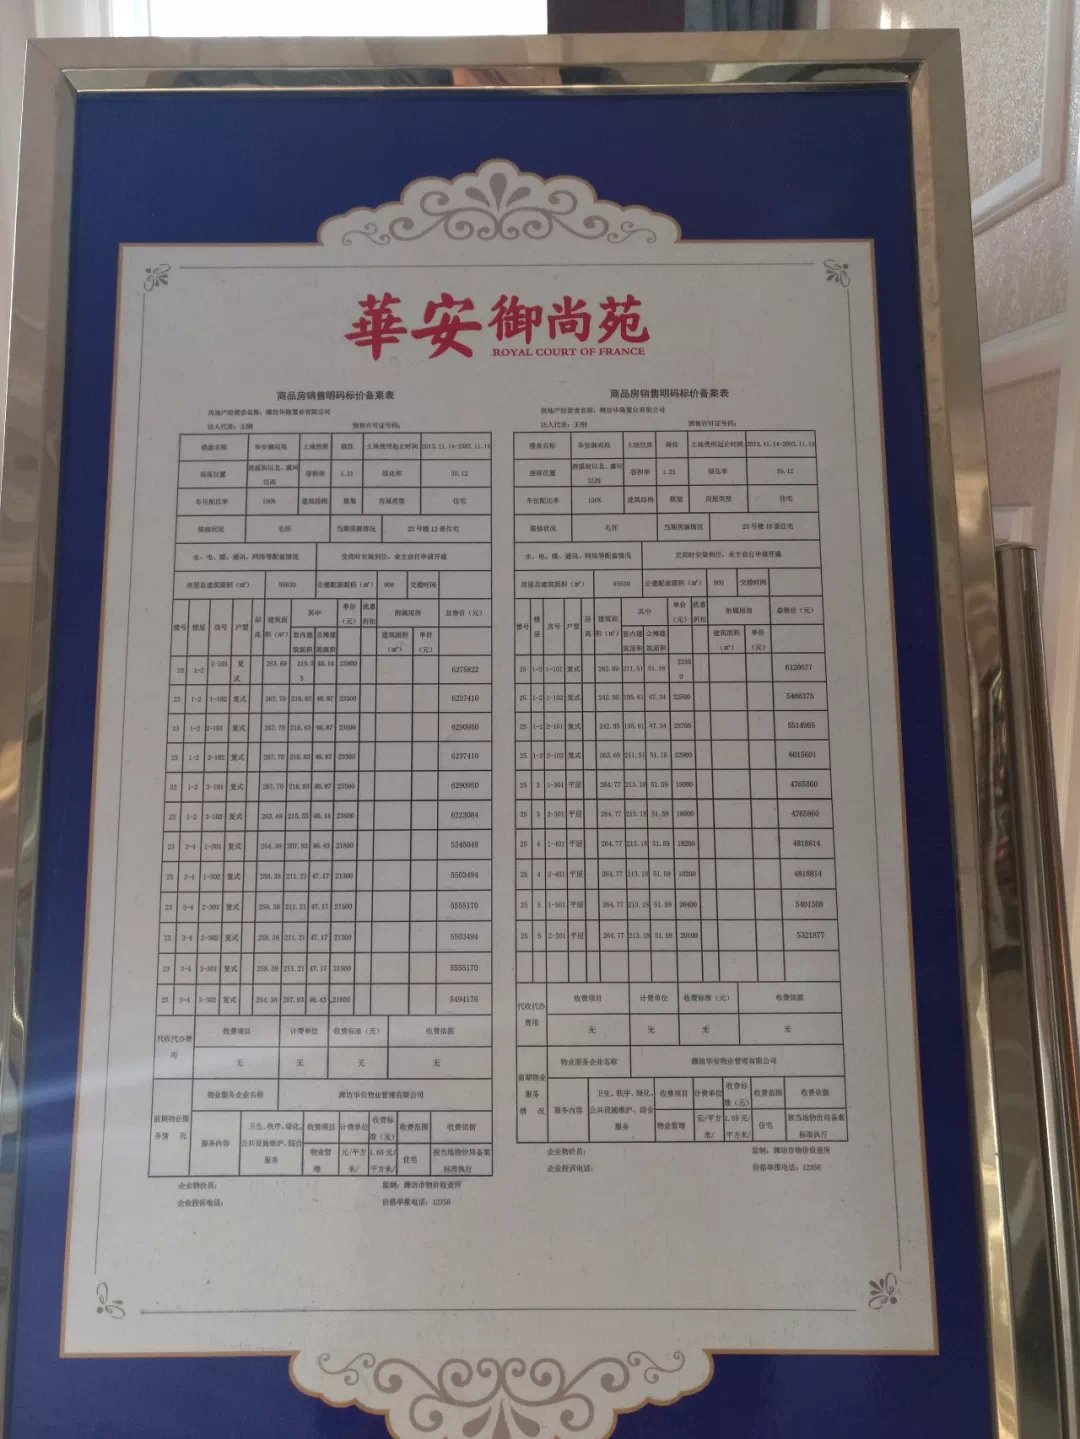 華安御尚苑
ROYAL COURT OF FRANCE
商品房销售明码标价备案表
房地产经营者名称：潍坊华隆置业有限公司
法人代表：王刚 预售许可证号码：
楼盘名称 华安御尚苑 土地性质 土地使用起止时间
座落位置 容积率 1.21 绿化率 35.12
车位配比率 100% 建筑结构 框架 房屋类型 住宅
装修状况 毛坯 当期房源情况 23号楼12套住宅
水、电、暖、通讯、网络等配套情况 交房时安装到位，业主自行申请开通
房屋总建筑面积（㎡） 95630 公建配套面积（㎡） 900 交楼时间
楼号 楼层 房号 户型 层高 建筑面积（㎡） 其中 单价（元） 优惠折扣 附属用房 总售价（元）
套内建筑面积 公摊建筑面积 建筑面积（㎡） 单价（元）
23 1-2 1-101 复式 263.69 215.55 48.14 23800 6275822
23 1-2 1-102 复式 267.70 218.83 48.87 23300 6237410
23 1-2 2-101 复式 267.70 218.83 48.87 23500 6290950
23 1-2 2-102 复式 267.70 218.83 48.87 23300 6237410
23 1-2 3-101 复式 267.70 218.83 48.87 23500 6290950
23 1-2 3-102 复式 263.69 215.55 48.14 23600 6223084
23 3-4 1-301 复式 254.36 207.93 46.43 21800 5545048
23 3-4 1-302 复式 258.38 211.21 47.17 21300 5503494
23 3-4 2-301 复式 258.38 211.21 47.17 21500 5555170
23 3-4 2-302 复式 258.38 211.21 47.17 21300 5503494
23 3-4 3-301 复式 258.38 211.21 47.17 21500 5555170
23 3-4 3-302 复式 254.36 207.93 46.43 21600 5494176
代收代办费用 收费项目 计费单位 收费标准（元） 收费依据
无 无 无 无
前期物业服务情况 物业服务企业名称 潍坊华安物业管理有限公司
服务内容 卫生、秩序、绿化、公共设施维护、综合服务 收费项目 计费单位 收费标准（元） 收费范围 收费依据
物业管理 元/平方米/ 1.65元/平方米/ 住宅 按当地物价局备案标准执行
企业物价员： 监制：潍坊市物价检查所
企业投诉电话： 价格举报电话：12358
商品房销售明码标价备案表
房地产经营者名称：潍坊华隆置业有限公司
法人代表：王刚 预售许可证号码：
楼盘名称 华安御尚苑 土地性质 土地使用起止时间
座落位置 容积率 1.21 绿化率 35.12
车位配比率 100% 建筑结构 框架 房屋类型 住宅
装修状况 毛坯 当期房源情况 25号楼10套住宅
水、电、暖、通讯、网络等配套情况 交房时安装到位，业主自行申请开通
房屋总建筑面积（㎡） 95630 公建配套面积（㎡） 900 交楼时间
楼号 楼层 房号 户型 层高 建筑面积（㎡） 其中 单价（元） 优惠折扣 附属用房 总售价（元）
套内建筑面积 公摊建筑面积 建筑面积（㎡） 单价（元）
25 1-2 1-101 复式 262.69 211.51 51.18 23300 6120677
25 1-2 1-102 复式 242.95 195.61 47.34 22500 5466375
25 1-2 2-101 复式 242.95 195.61 47.34 22700 5514965
25 1-2 2-102 复式 262.69 211.51 51.18 22900 6015601
25 3 1-301 平层 264.77 213.18 51.59 18000 4765860
25 3 2-301 平层 264.77 213.18 51.59 18000 4765860
25 4 1-401 平层 264.77 213.18 51.59 18200 4818814
25 4 2-401 平层 264.77 213.18 51.59 18200 4818814
25 5 1-501 平层 264.77 213.18 51.59 20400 5401308
25 5 2-501 平层 264.77 213.18 51.59 20100 5321877
代收代办费用 收费项目 计费单位 收费标准（元） 收费依据
无 无 无 无
前期物业服务情况 物业服务企业名称 潍坊华安物业管理有限公司
服务内容 卫生、秩序、绿化、公共设施维护、综合服务 收费项目 计费单位 收费标准（元） 收费范围 收费依据
物业管理 元/平方米/ 1.65元/平方米/ 住宅 按当地物价局备案标准执行
企业物价员： 监制：潍坊市物价检查所
企业投诉电话： 价格举报电话：12358